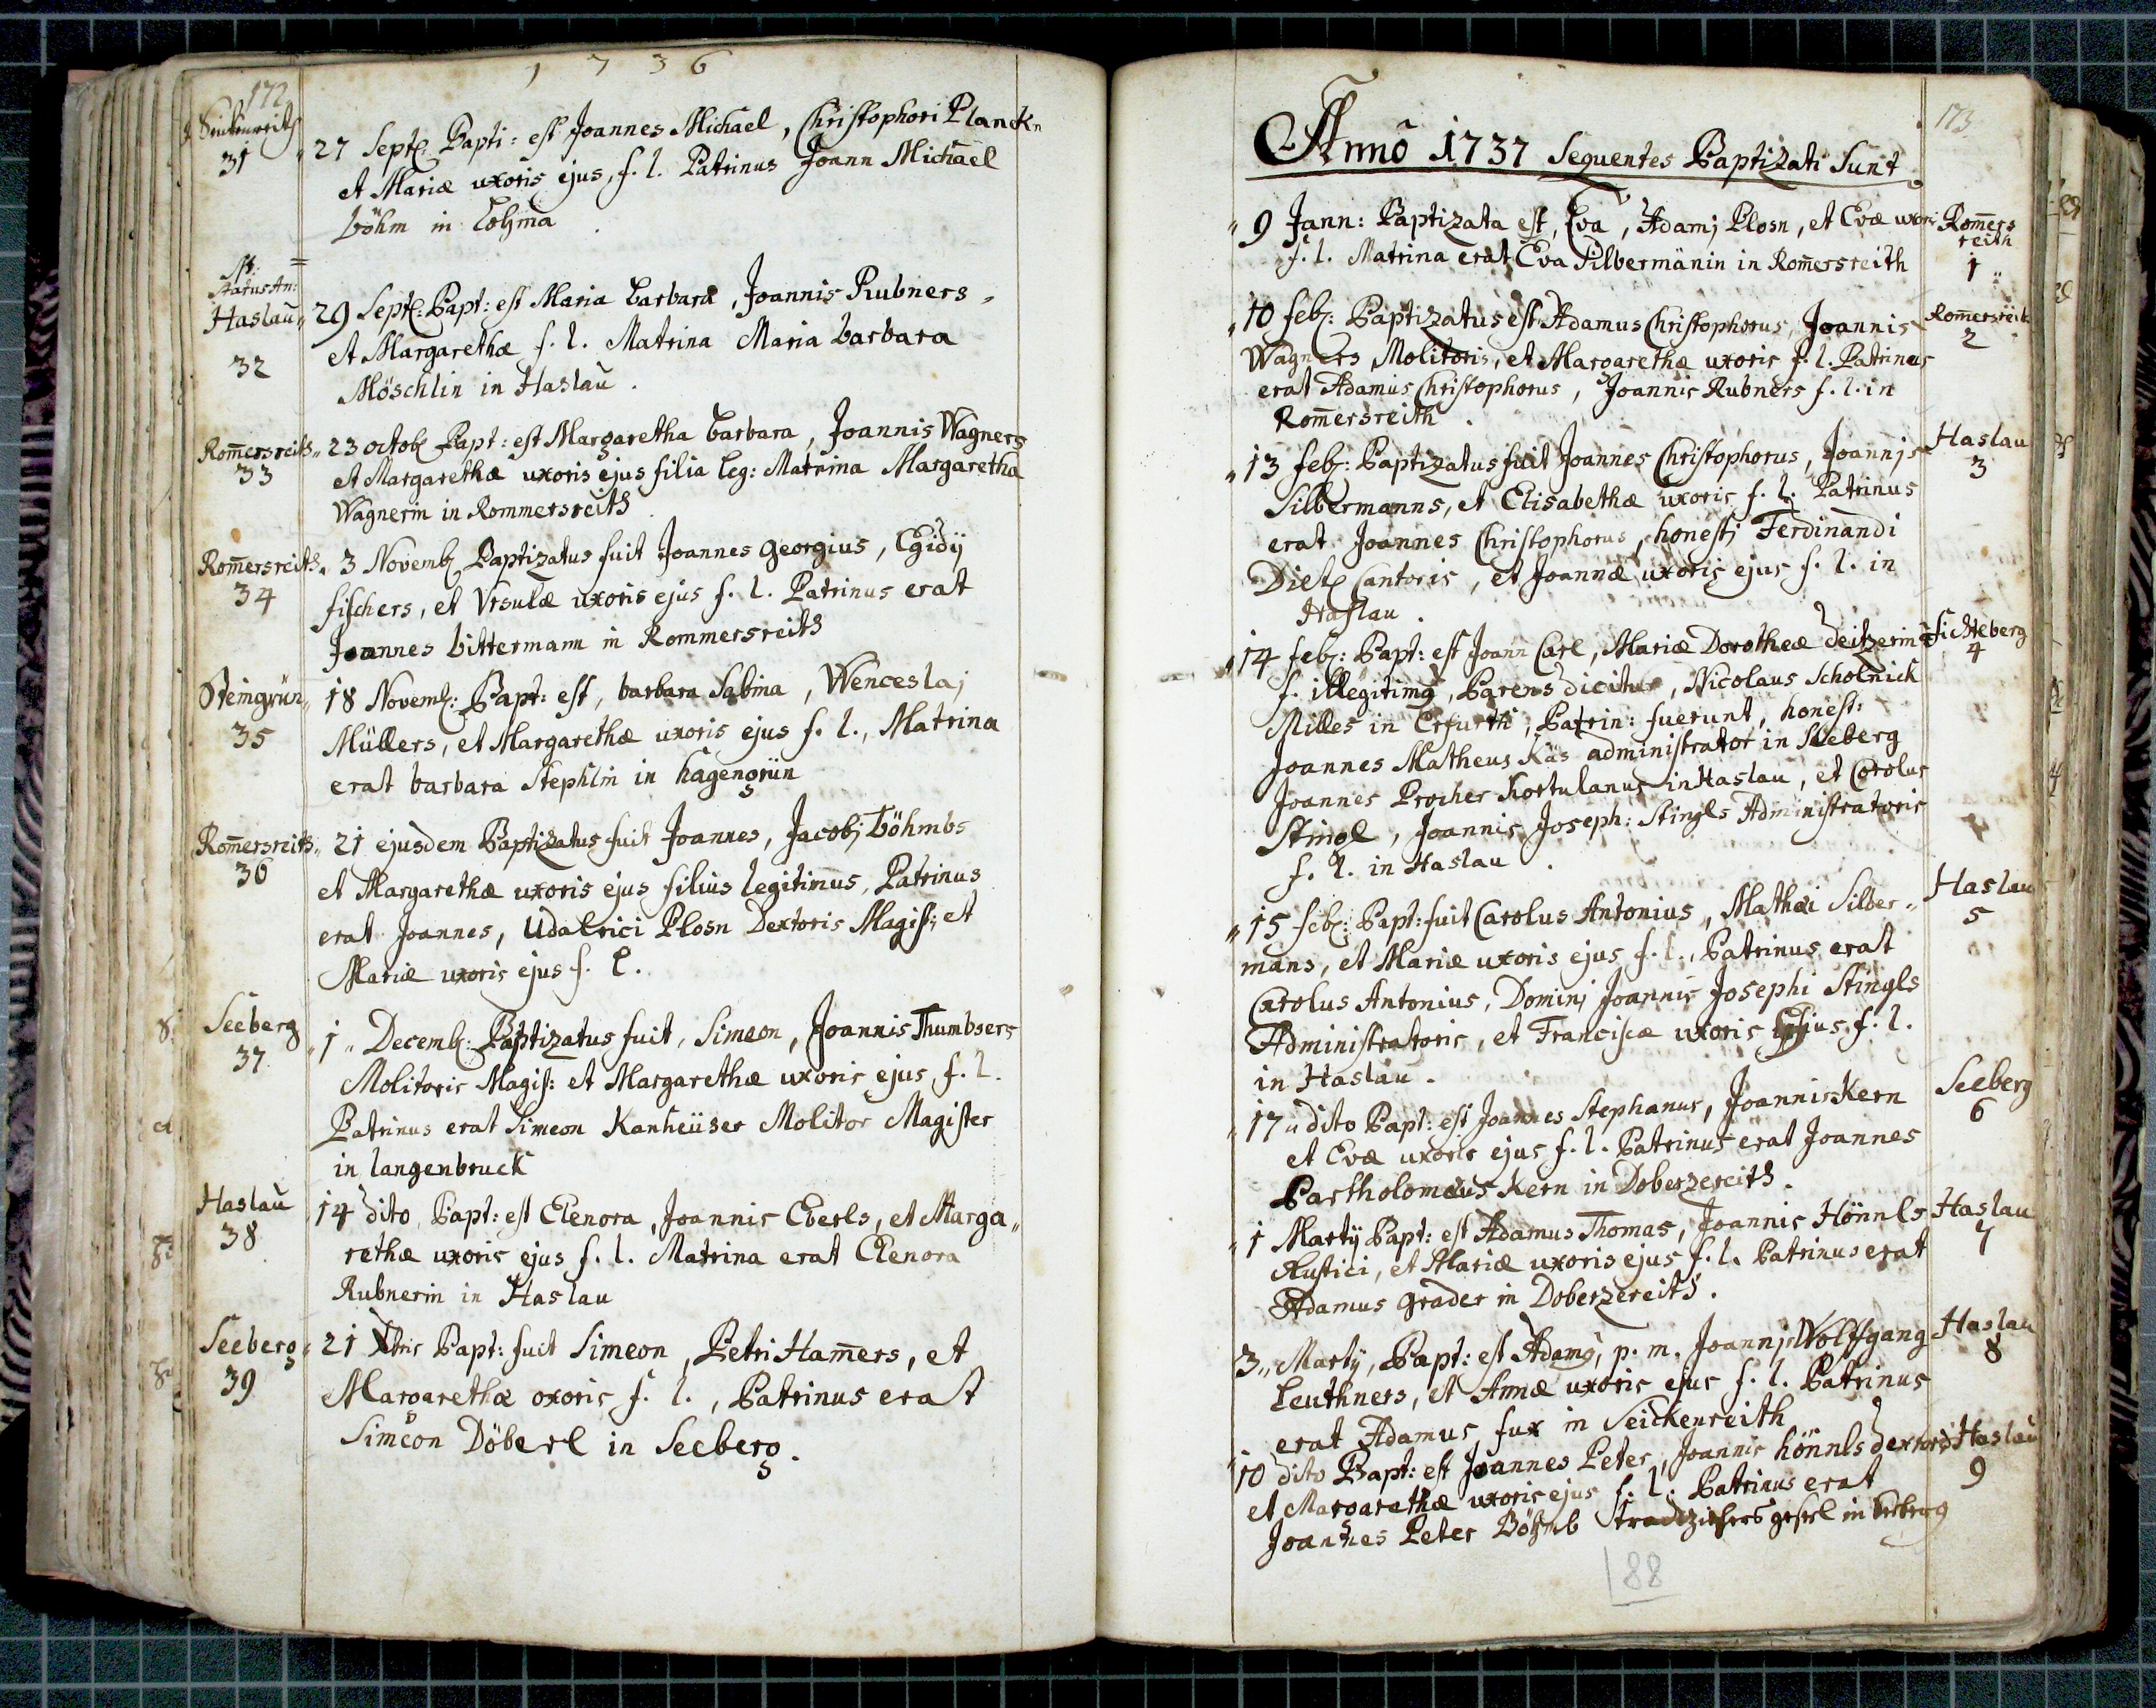 1736
172
Seickenreith
31
27 Septb: Bapti: est Joannes Michael, Christophori Planckn
et Mariæ uxoris ejus, f. l. Patrinus Joann Michael
böhm in
Status An:
Haslau
32
29 Septb: Bapt: est Maria barbara, Joannis Rubners
et Margarethæ f. l. Matrina Maria barbara
Möschlin in Haslau.
Rom̄ersreith
33
23 octob Bapt: est Margaretha barbara, Joannis Wagners
et Margarethæ uxoris ejus filia leg: Matrina Margaretha
Wagnerin in Rommersreith
Rom̄ersreith
34
3 Novemb Baptizatus fuit Joannes georgius, Egidij
fischers, et Vrsulæ uxoris ejus f. l. Patrinus erat
Joannes bittermann in Rommersreith
Steingrün
35
18 Novemb: Bapt: est, barbara Sabina, Wenceslaj
Müllers, et Margarethæ uxoris ejus f. l., Matrina
erat barbara Stephlin in hagengrün
Rom̄ersreith
36
21 ejusdem Baptizatus fuit Joannes, Jacobj böhmbs
et Margarethæ uxoris ejus filius legitimus, Patrinus
erat Joannes, Udalrici Plosn Dextoris Magist: et
Mariæ uxoris ejus f. l.
Seeberg
37
1 Decemb: Baptizatus fuit, Simeon, Joannis Thumbsers
Molitoris Magist: et Margarethæ uxoris ejus f. l.
Patrinus erat Simeon Kanheüser Molitor Magister
in langenbruck
Haslau
38
14 dito, Bapt: est Elenora, Joannis Eberls, et Marga
rethæ uxoris ejus f. l. Matrina erat Elenora
Rubnerin in Haslau
Seeberg
39
21 Xbris Bapt: fuit Simeon, Petri Ham̄ers, et
Margarethæ oxoris f. l., Patrinus erat
Simeon Döberl in Seeberg.
173
Anno 1737 Sequentes Baptizati Sunt
9 Jann: Baptizata est, Eva, Adamj Plosn, et Evæ uxori
Rom̄ers
reith
1
f. l. Matrina erat Eva Silbermänin in Rom̄ersreith
10 feb: Baptizatus est Adamus Christophorus, Joannis
Rom̄ersreith
2
Wagners Molitoris, et Margarethæ uxoris f. l. Patrinus
erat Adamus Christophorus, Joannis Rubners f. l. in
Rom̄ersreith.
13 feb: Baptizatus fuit Joannes Christophorus, Joannis
Haslau
3
Silbermanns, et Elisabethæ uxoris f. l. Patrinus
erat Joannes Christophorus, honestj Ferdinandi
Dietz Cantoris, et Joannæ uxoris ejus f. l. in
Haslau.
14 feb: Bapt: est Joann Carl, Mariæ Dorotheæ deitzerin
fichteberg
4
f. illegitimg, Parens dicitur, Nicolaus Scholnick
Milles in Erfurth, Patrin: fuerunt, honest:
Joannes Matheus Käs administrator in Seeberg
Joannes Procher hortulanus in Haslau, et Carolus
Stingl, Joannis Joseph: Stingls Administratoris
f. l. in Haslau.
15 feb: Bapt: fuit Carolus Antonius, Mathæi Silber
Haslau
5
mans, et Mariæ uxoris ejus f. l., Patrinus erat
Carolus Antonius, Dominj Joannis Josephi Stingls
Administratoris, et Franciscæ uxoris Ejus f. l.
in Haslau.
17 dito Bapt: est Joannes Stephanus, Joannis Kern
Seeberg
6
et Evæ uxoris ejus f. l. Patrinus erat Joannes
Bartholomæus Kern in Doberzereith.
1 Martij Bapt: est Adamus Thomas, Joannis Hönnls
Haslau
7
Rustici, et Mariæ uxoris ejus f. l. Patrinus erat
Adamus grader in Doberzereith.
3 Martij, Bapt: est Adamg, p. m. Joannis Wolffgang
Haslau
8
Leuthners, et Annæ uxoris ejus f. l. Patrinus
erat Adamus fux in Seickenreith
10 dito Bapt: est Joannes Peter, Joannis hönnls dextoris
Haslau
9
et Margarethæ uxoris ejus f. l. Patrinus erat
Joannes Peter Böhmb gesel in Seeberg
188